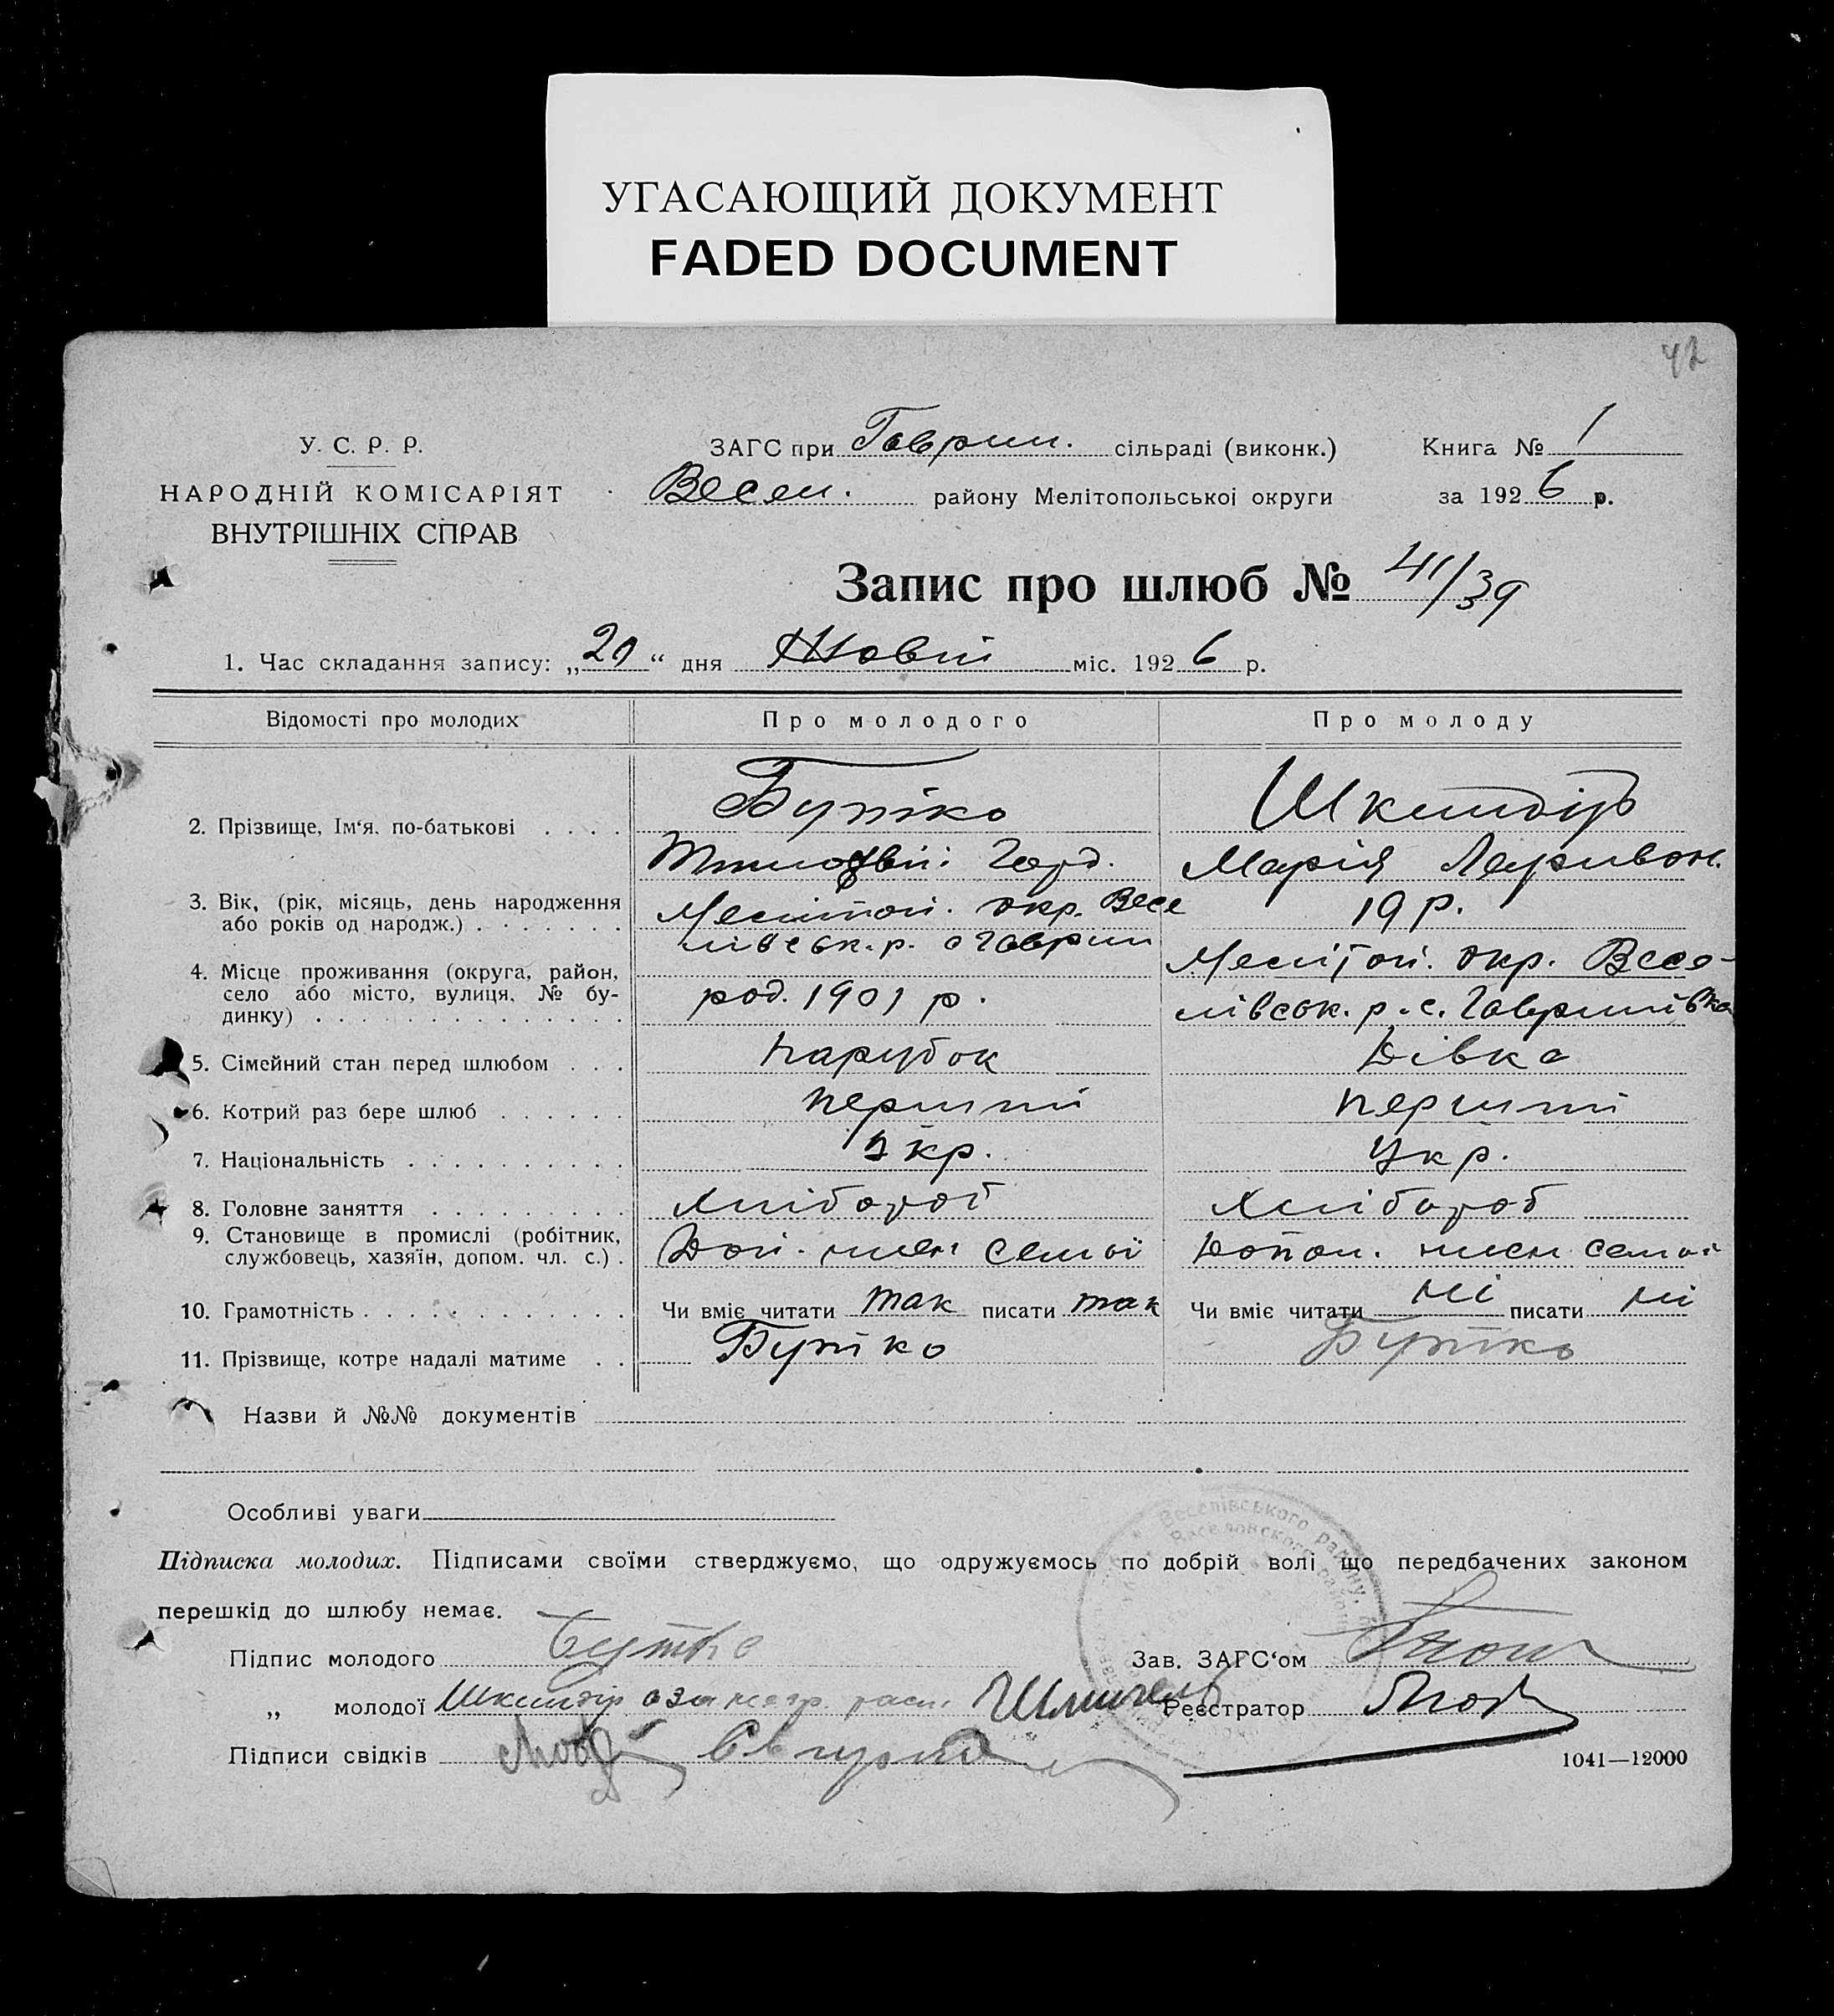 УГАСАЮЩИЙ ДОКУМЕНТ
FADED DOCUMENT
42
У. С. Р. Р.
НАРОДНІЙ КОМІСАРІЯТ
ВНУТРІШНІХ СПРАВ
ЗАГС при Гаврил. сільраді (виконк.)
Весел. району Мелітопольської округи
Книга № 1
за 1926 р.
Запис про шлюб № 41/39
1. Час складання запису: „20“ дня Жовтн міс. 1926 р.
Відомості про молодих
Про молодого
Про молоду
2. Прізвище, Ім'я, по-батькові . . . .
Бутко
Тимофвій Горд.
Шкиндір
Марія Ларивон.
3. Вік, (рік, місяць, день народження
або років од народж.) . . . . . . .
Меліton. окр. Весе
лівськ. р. с Гаврил
19 р.
4. Місце проживання (округа, район,
село або місто, вулиця, № бу-
динку) . . . . . . . . . . . . . .
род. 1901 р.
Меліtоп. окр. Весе-
лівськ. р. с. Гаврилівка
5. Сімейний стан перед шлюбом . . .
Парубок
Дівка
6. Котрий раз бере шлюб . . . . . .
перший
перший
7. Національність . . . . . . . . . .
Укр.
Укр.
8. Головне заняття . . . . . . . . .
Хлібороб
Хлібороб
9. Становище в промислі (робітник,
службовець, хазяїн, допом. чл. с.) .
Доп. член семьї
Допом. член семьї
10. Грамотність . . . . . . . . . . . .
Чи вміє читати так писати так
Чи вміє читати ні писати ні
11. Прізвище, котре надалі матиме . .
Бутко
Бутко
Назви й №№ документів
Особливі уваги
Підписка молодих. Підписами своїми стверджуємо, що одружуємось по добрій волі що передбачених законом
перешкід до шлюбу немає.
Підпис молодого Бутко
Зав. ЗАГС'ом
„ молодої Шкиндір а за негр. расп.
Реєстратор
Підписи свідків
1041—12000
Веселівського району